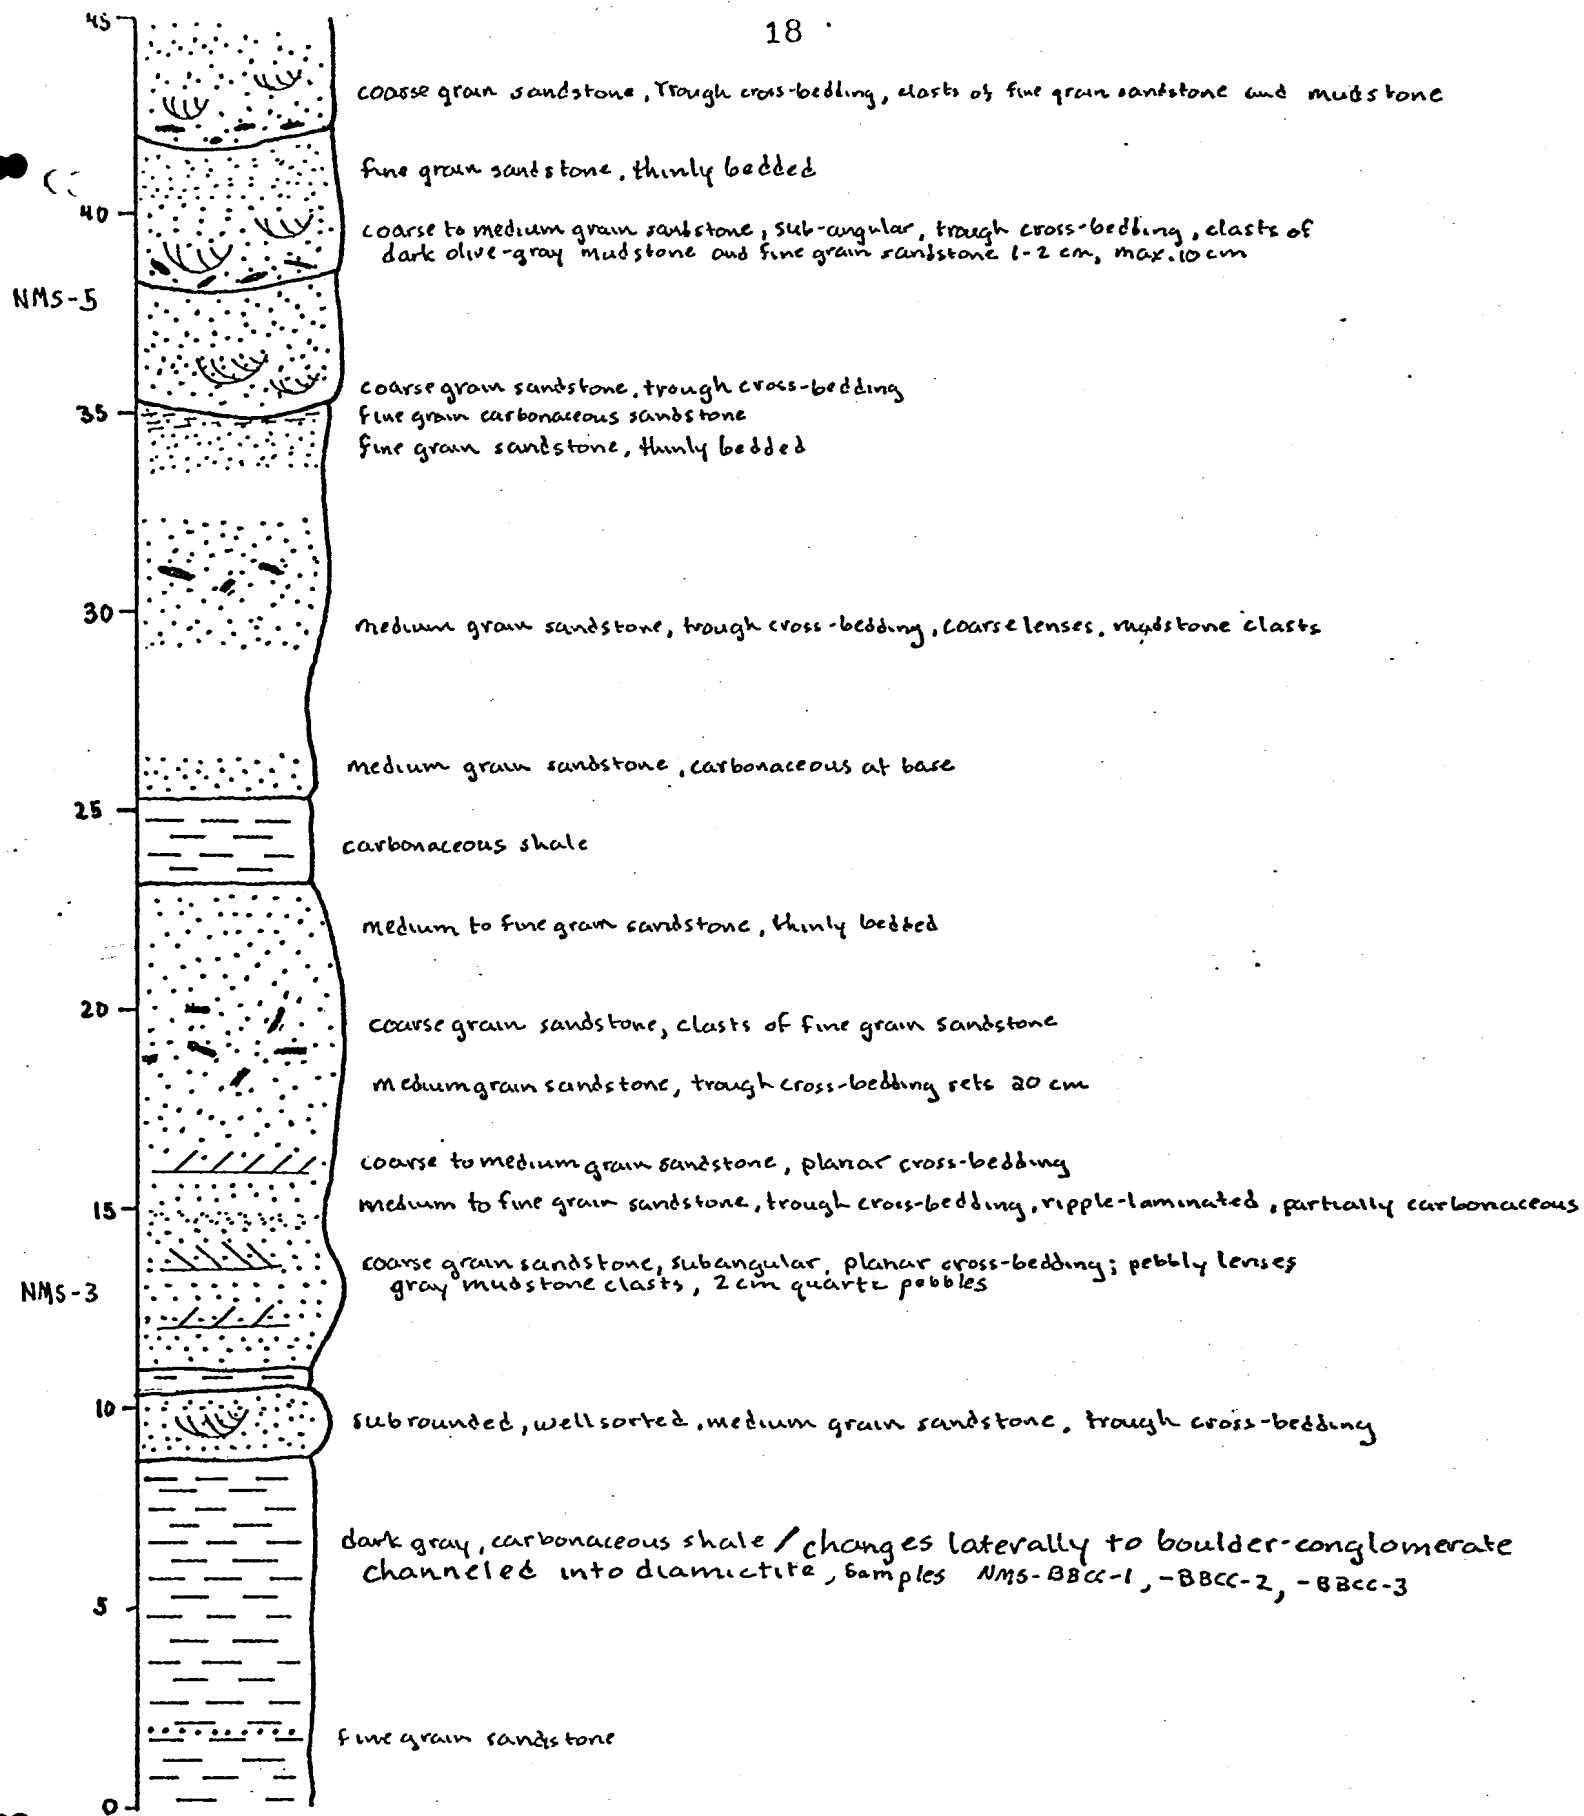 18
45
coarse grain sandstone, Trough cross-bedding, clasts of fine grain sandstone and mudstone
fine grain sandstone, thinly bedded
40
coarse to medium grain sandstone, sub-angular, trough cross-bedding, clasts of
dark olive-gray mudstone and fine grain sandstone 1-2 cm, max. 10 cm
NMS-5
coarse grain sandstone, trough cross-bedding
35
fine grain carbonaceous sandstone
fine grain sandstone, thinly bedded
30
medium grain sandstone, trough cross-bedding, coarse lenses, mudstone clasts
medium grain sandstone, carbonaceous at base
25
carbonaceous shale
medium to fine grain sandstone, thinly bedded
20
coarse grain sandstone, clasts of fine grain sandstone
medium grain sandstone, trough cross-bedding sets 20 cm
coarse to medium grain sandstone, planar cross-bedding
15
medium to fine grain sandstone, trough cross-bedding, ripple-laminated, partially carbonaceous
coarse grain sandstone, subangular, planar cross-bedding; pebbly lenses
gray mudstone clasts, 2 cm quartz pebbles
NMS-3
10
subrounded, well sorted, medium grain sandstone, trough cross-bedding
dark gray, carbonaceous shale / changes laterally to boulder-conglomerate
channeled into diamictite, Samples NMS-BBCC-1, -BBCC-2, -BBCC-3
5
fine grain sandstone
0